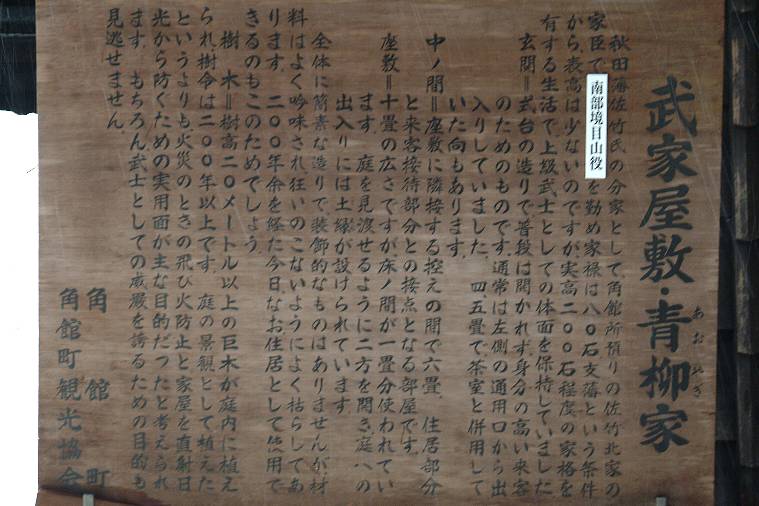 武家屋敷・青柳家
あおやぎ
秋田藩佐竹氏の分家として、角館所預りの佐竹北家の
家臣で南部境目山役を勤め家禄は八〇石支藩という条件
から、表高は少ないのですが、実高二〇〇石程度の家格を
有する生活で、上級武士としての体面を保持していました
玄関＝式台の造りで普段は開かれず、身分の高い来客
のためのものです。通常は左側の通用口から出
入りしていました。四、五畳で、茶室と併用して
いた向もあります。
中ノ間＝座敷に隣接する控えの間で六畳、住居部分
と来客接待部分との接点となる部屋です。
座敷＝十畳の広さですが床ノ間が一畳分使われてい
ます。庭を見渡せるように二方を開き、庭への
出入りには土縁が設けられています
全体に簡素な造りで装飾的なものはありませんが、材
料はよく吟味され、狂いのこないようによく枯らしてあ
ります。二〇〇年余を経た今日、なお住居として使用で
きるのもこのためでしょう。
樹木＝樹高二〇メートル以上の巨木が庭内に植え
られ、樹令は二〇〇年以上です。庭の景観として植えた
というよりも火災のときの飛び火防止と家屋を直射日
光から防ぐための実用面が主な目的だったと考えられ
ます。もちろん武士としての威厳を誇るための目的も
見逃せません。
角館町
角館町観光協会